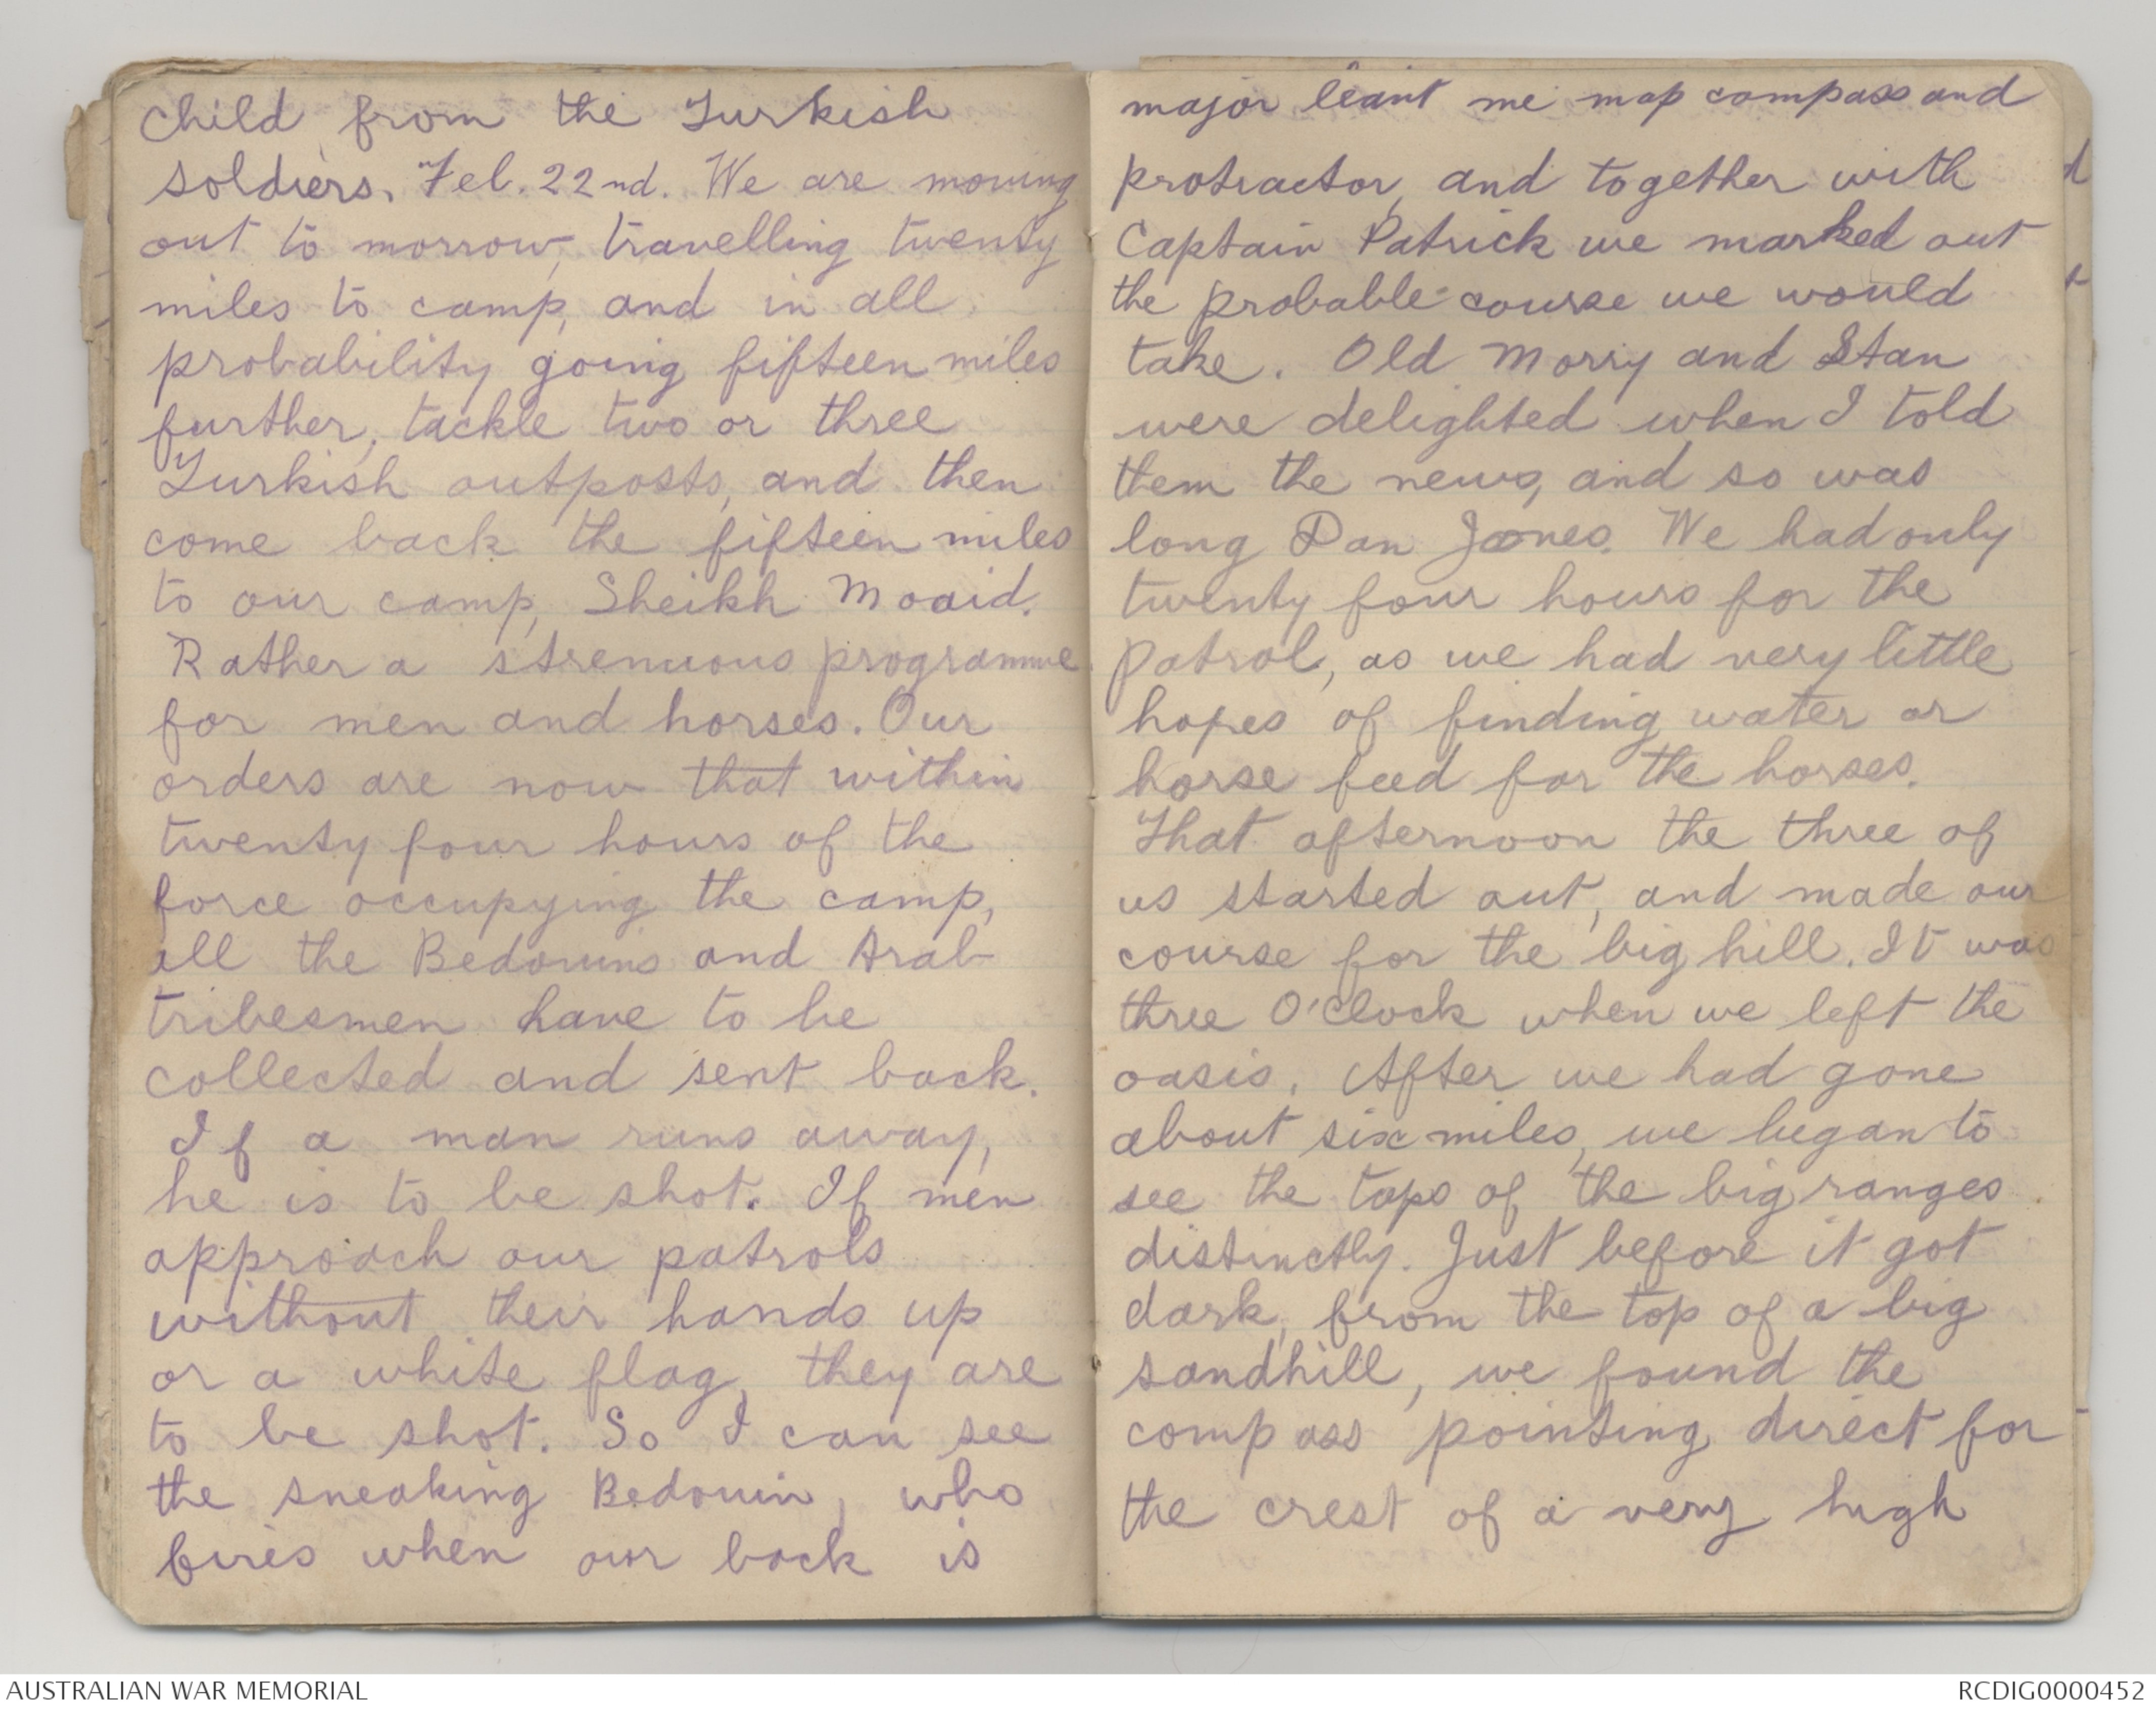 child from the Turkish
soldiers. Feb. 22nd. We are moving
out to morrow, travelling twenty
miles to camp, and in all
probability going fifteen miles
further, tackle two or three
Turkish outposts, and then
come back the fifteen miles
to our camp, Sheikh Moaid.
Rather a strenuous programme
for men and horses. Our
orders are now that within
twenty four hours of the
force occupying the camp,
all the Bedouins and Arab
tribesmen have to be
collected and sent back.
If a man runs away,
he is to be shot. If men
approach our patrols
without their hands up
or a white flag, they are
to be shot. So I can see
the sneaking Bedouin, who
fires when our back is
major leant me map compass and
protractor, and together with
Captain Patrick we marked out
the probable course we would
take. Old Morry and Stan
were delighted when I told
them the news, and so was
long Dan Jones. We had only
twenty four hours for the
patrol, as we had very little
hopes of finding water or
horse feed for the horses.
That afternoon the three of
us started out, and made our
course for the big hill. It was
three O'Clock when we left the
oasis. After we had gone
about six miles, we began to
see the tops of the big ranges
distinctly. Just before it got
dark, from the top of a big
sandhill, we found the
compass pointing direct for
the crest of a very high
AUSTRALIAN WAR MEMORIAL
RCDIG0000452